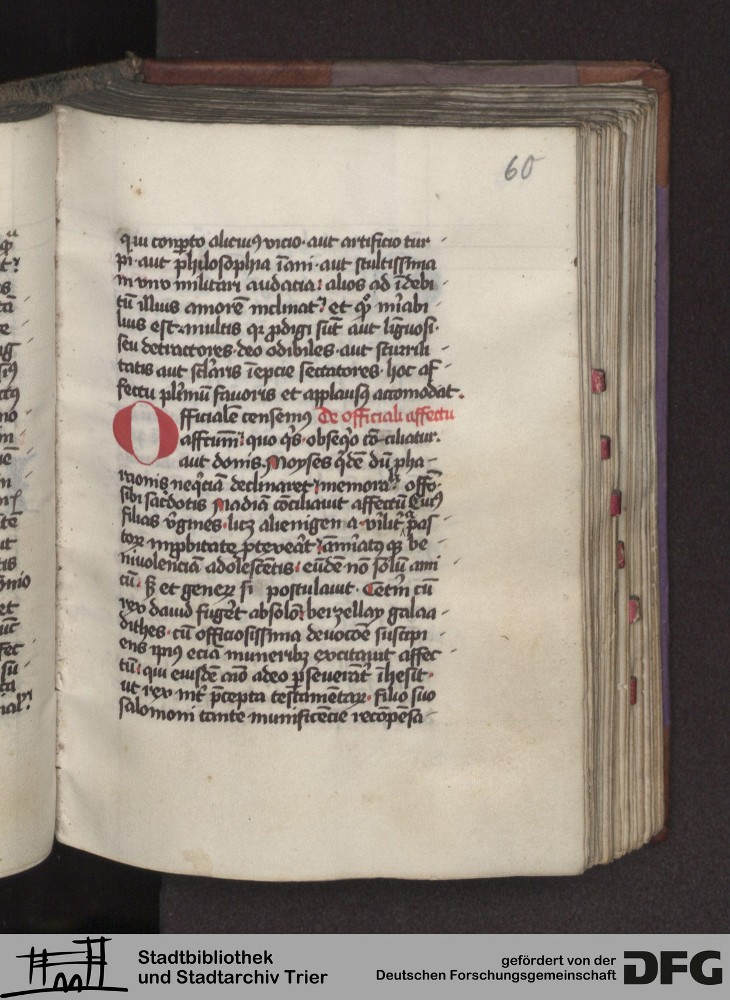 60
qui conp̲to alicuiꝰ vicio · aut artificio tur
pi · aut philosophia īani · aut stultissima
in vno militari audacia : alios ad īdebi
tū illius amorē inclinat᷑ et qͦ mīabi
lius est · multis qꝛ ꝓdigi sūt aut līguosi ·
seu detractores · deo odibiles · aut scurrili
tatis aut sclāris īepcie sectatores · hoc af
fectu plēmū fauoris et applausꝰ accomodat ·
Officialē censemꝰ De officiali affectu
affctum : quo qͥs · obseqͦo cōciliatur ·
aut donis · Moyses qͥdē dū pha
raonis neqͥciā declinaret memorat᷑ offō
sibi sac̄dotis Madiā cōciliauit affectū Cuiꝰ
filias v̓gines · licꝫ alienigenā a vilit᷑ pas
toꝝ īnpbitate ꝓteget · āmiatꝰ qꝫ be
niuolenciā adolescētis : eūdē nō solū ami
cū · sꝫ et geneꝝ si postulauit · Cetm̄ cū
rex dauid fuget absolō : berzellay galaa
dithes · cū officiosissima deuocōe suscipi
ens ipiꝰ eciā munerib9 excitauit affec
tū : qui eiusdē aīo adeo ꝑseueranť īhesit ·
ut rex int᷑ p̄cepta testamētaꝝ · filio suo
salomoni tante munificēcie recōpēsa
Stadtbibliothek
und Stadtarchiv Trier
gefördert von der
Deutschen Forschungsgemeinschaft
DFG